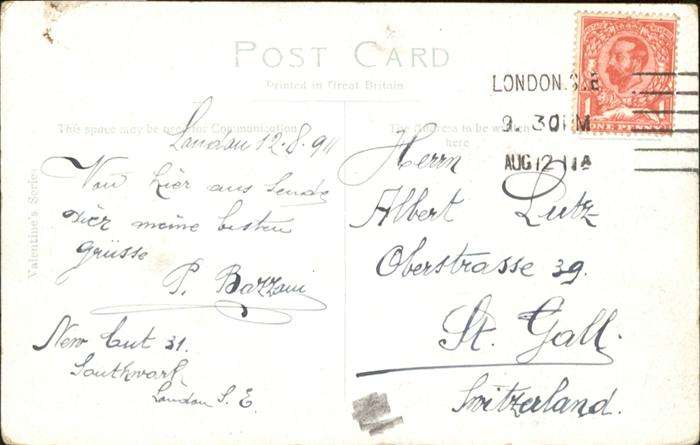 POST CARD
Printed in Great Britain
This space may be used for Communication
The Address to be written
here
Valentine's Series
London 12.8.911
Von hier aus sende
Dir meine besten
Grüsse
P. Bazzani
New Cut 31.
Southwark
London S. E.
LONDON. S.E
9. 30 PM
AUG 12 11A
ONE PENNY
Herrn
Albert Lutz
Oberstrasse 39.
St. Gall.
Switzerland.